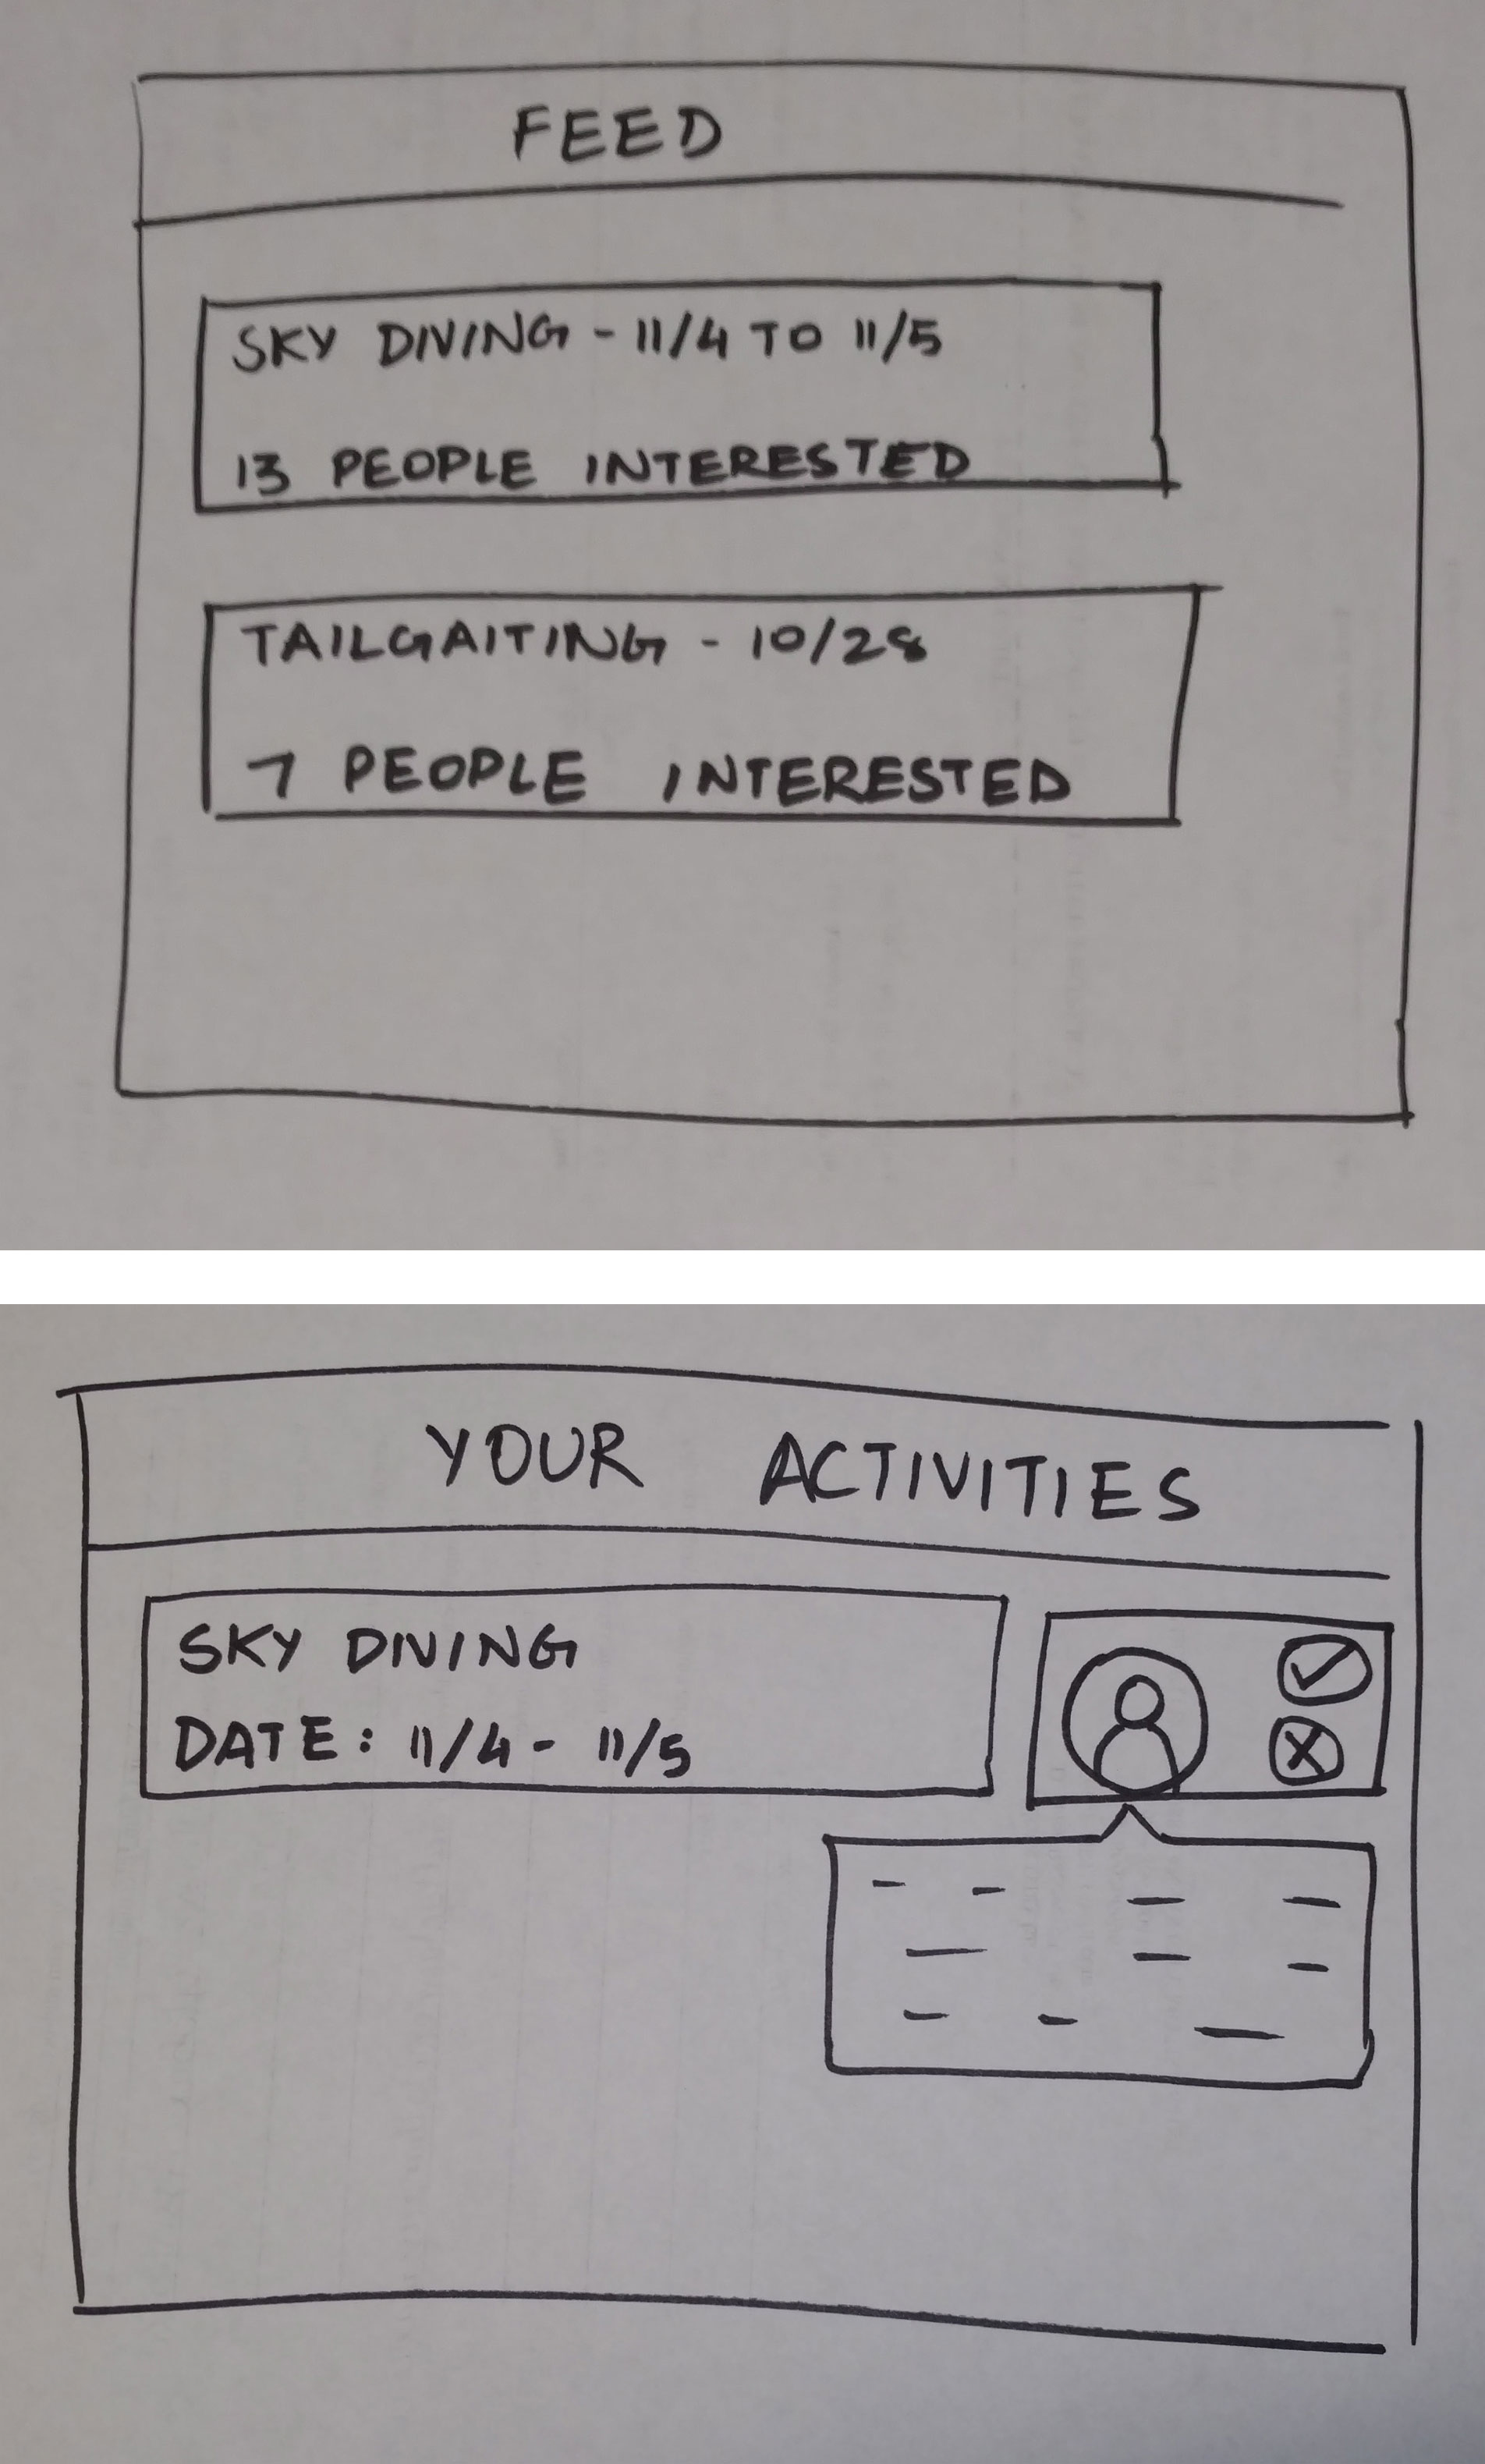 FEED
SKY DIVING - 11/4 TO 11/5
13 PEOPLE INTERESTED
TAILGAITING - 10/28
7 PEOPLE INTERESTED
YOUR ACTIVITIES
SKY DIVING
DATE: 11/4 - 11/5